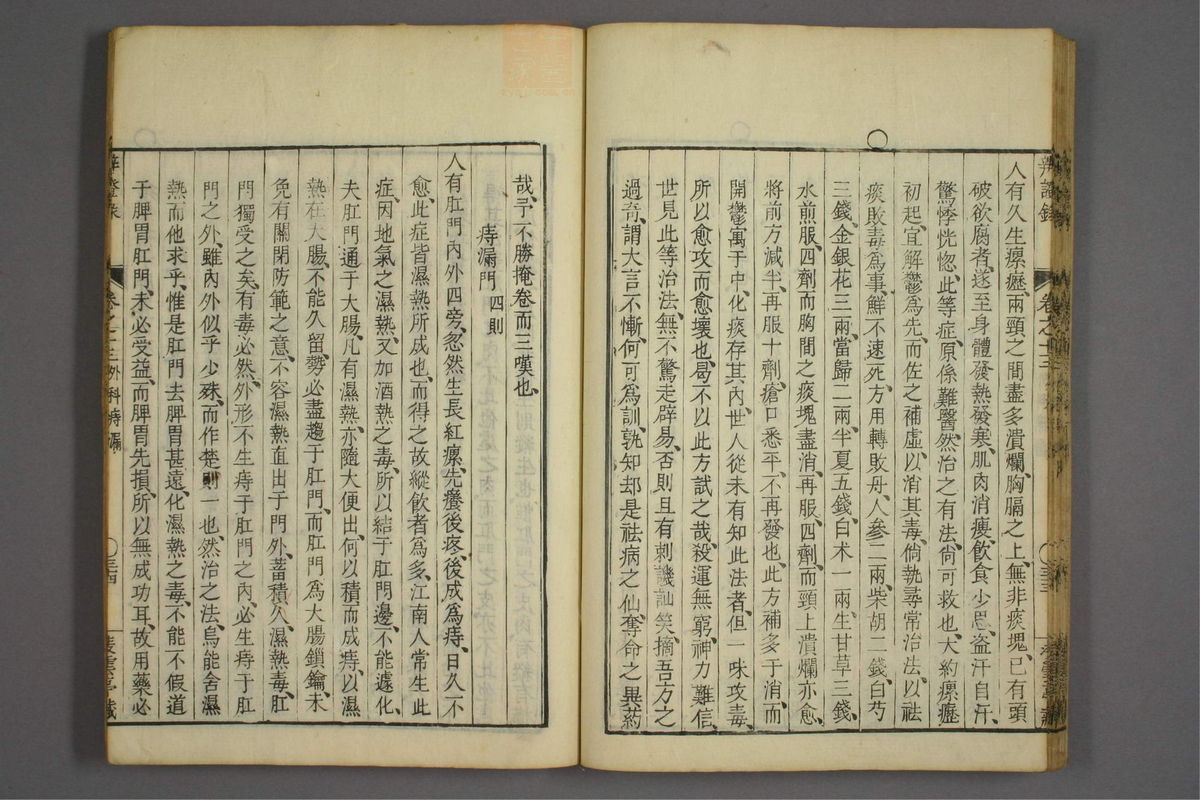 人有久生瘰癧、兩頸之間盡多潰爛、胸膈之上、無非痰塊、已有頭
破欲腐者、遂至身體發熱發寒、肌肉消瘦、飲食少思、盗汗自汗、
驚悸恍惚、此等症、原係難醫、然治之有法、尚可救也、大約瘰癧
初起、宜解鬱爲先、而佐之補虛、以消其毒、倘執尋常治法、以祛
痰敗毒爲事、鮮不速死、方用轉敗丹、人參二兩、柴胡二錢、白芍
三錢、金銀花三兩、當歸二兩、半夏五錢、白术一兩、生甘草三錢、
水煎服、四劑而胸間之痰塊盡消、再服四劑、而頸上潰爛亦愈、
將前方減半、再服十劑、瘡口悉平、不再發也、此方補多于消、而
開鬱寓于中、化痰存其內、世人從未有知此法者、但一味攻毒、
所以愈攻而愈壞也、曷不以此方試之哉、殺運無窮、神力難信、
世見此等治法、無不驚走辟易、否則且有刺譏訕笑、摘吾方之
過奇、謂大言不慚、何可爲訓、孰知却是祛病之仙、奪命之異药
辨證錄
卷之十三
三三
哉、予不勝掩卷而三嘆也、
痔漏門 四則
人有肛門內外四旁、忽然生長紅瘰、先癢後疼、後成爲痔、日久不
愈、此症皆濕熱所成也、而得之故縱飲者爲多、江南人常生此
症、因地氣之濕熱、又加酒熱之毒、所以結于肛門邊、不能遽化、
夫肛門通于大腸、凡有濕熱、亦隨大便出、何以積而成痔、以濕
熱在大腸、不能久留、勢必盡趨于肛門、而肛門爲大腸鎖鑰、未
免有關閉防範之意、不容濕熱直出于門外、蓄積久、濕熱毒、肛
門獨受之矣、有毒必然外形、不生痔于肛門之內、必生痔于肛
門之外、雖內外似乎少殊、而作楚則一也、然治之法、烏能舍濕
熱而他求乎、惟是肛門去脾胃甚遠、化濕熱之毒、不能不假道
于脾胃、肛門未必受益、而脾胃先損、所以無成功耳、故用藥必
卷之十三 外科痔漏
三四